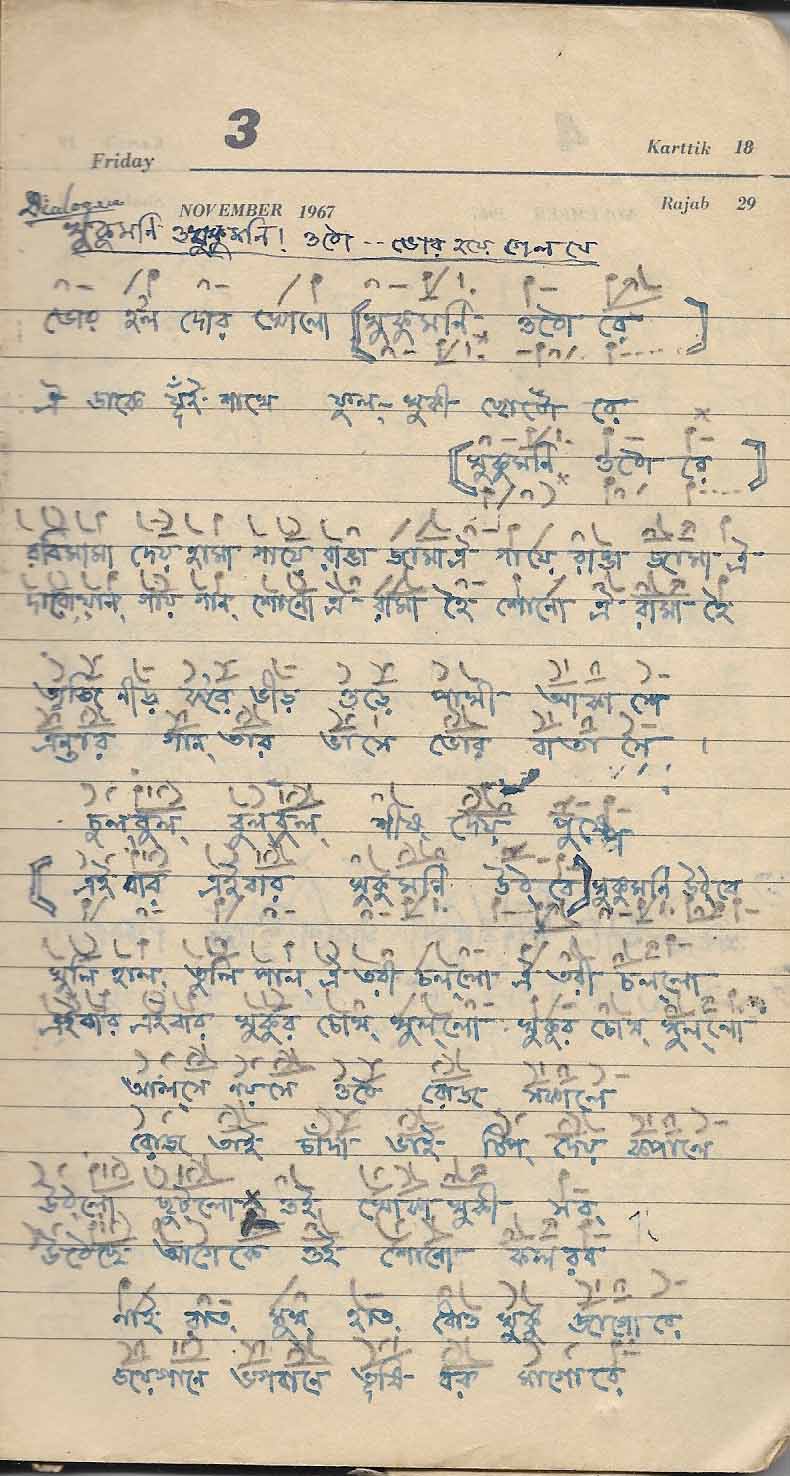 3
Friday
Karttik 18
NOVEMBER 1967
Rajab 29
Dialogue
খুকুমনি ও খুকুমনি! ওঠো -- ভোর হয়ে গেল যে
ভোর হল দোর খোলো [খুকুমনি ওঠো রে]
ঐ ডাকে যুঁই শাখে ফুল-খুকী ছোটো রে
[খুকুমনি ওঠো রে]
রবিমামা দেয় হামা গায়ে রাঙা জামা ঐ গায়ে রাঙা জামা ঐ
দারোয়ান্ গায় গান্ শোনো ঐ রামা হৈ শোনো ঐ রামা হৈ
ত্যজি নীড় করে ভীড় ওড়ে পাখী আকাশে
এন্তার গান্ তার ভাসে ভোর বাতাসে।
চুলবুল্ বুলবুল্ শীষ্ দেয় পুষ্পে
[এইবার এইবার খুকুমনি উঠবে] খুকুমনি উঠবে
খুলি হাল্ তুলি পাল্ ঐ তরী চল্‌লো ঐ তরী চললো
এইবার এইবার খুকুর চোখ্ খুল্‌লো খুকুর চোখ্ খুল্‌লো
আলসে নয় সে ওঠে রোজ সকালে
রোজ তাই চাঁদা ভাই টিপ্ দেয় কপালে
উঠ্‌লো ছুটলো ওই খোকাখুকী সব্
উঠেছে আগে কে ওই শোনো কলরব
নাই রাত্ মুখ্ হাত্ ধোও খুকু জাগো রে
জয়গানে ভগবানে তুষি বর মাগোরে